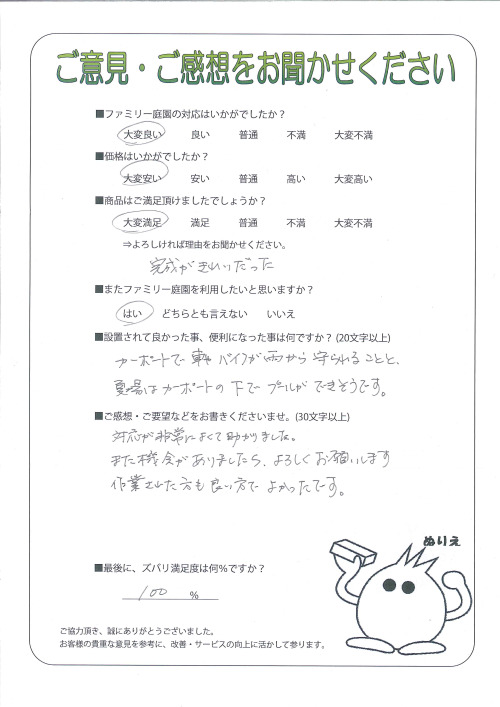 ご意見・ご感想をお聞かせください
■ファミリー庭園の対応はいかがでしたか？
大変良い　良い　普通　不満　大変不満
■価格はいかがでしたか？
大変安い　安い　普通　高い　大変高い
■商品はご満足頂けましたでしょうか？
大変満足　満足　普通　不満　大変不満
⇒よろしければ理由をお聞かせください。
完成がきれいだった
■またファミリー庭園を利用したいと思いますか？
はい　どちらとも言えない　いいえ
■設置されて良かった事、便利になった事は何ですか？(20文字以上)
カーポートで車やバイクが雨から守られることと、
夏場はカーポートの下でプールができそうです。
■ご感想・ご要望などをお書きくださいませ。(30文字以上)
対応が非常によくて助かりました。
また機会がありましたら、よろしくお願いします
作業された方も良い方でよかったです。
ぬりえ
■最後に、ズバリ満足度は何％ですか？
100　％
ご協力頂き、誠にありがとうございました。
お客様の貴重な意見を参考に、改善・サービスの向上に活かして参ります。